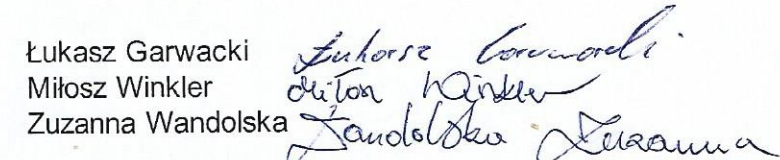 Łukasz Garwacki Łukasz Garwacki
Miłosz Winkler Miłosz Winkler
Zuzanna Wandolska Wandolska Zuzanna